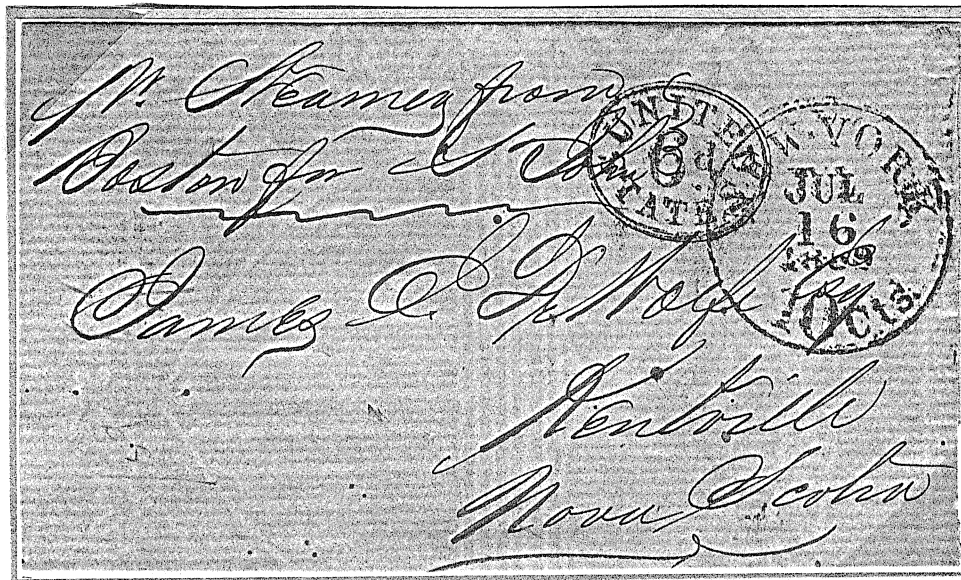 Pr. Steamer from
Boston for St John
James E. DeWolfe Esq
Kentville
Nova Scotia
UNITED
6d
STATES
NEW YORK
JUL
16
10 Cts.